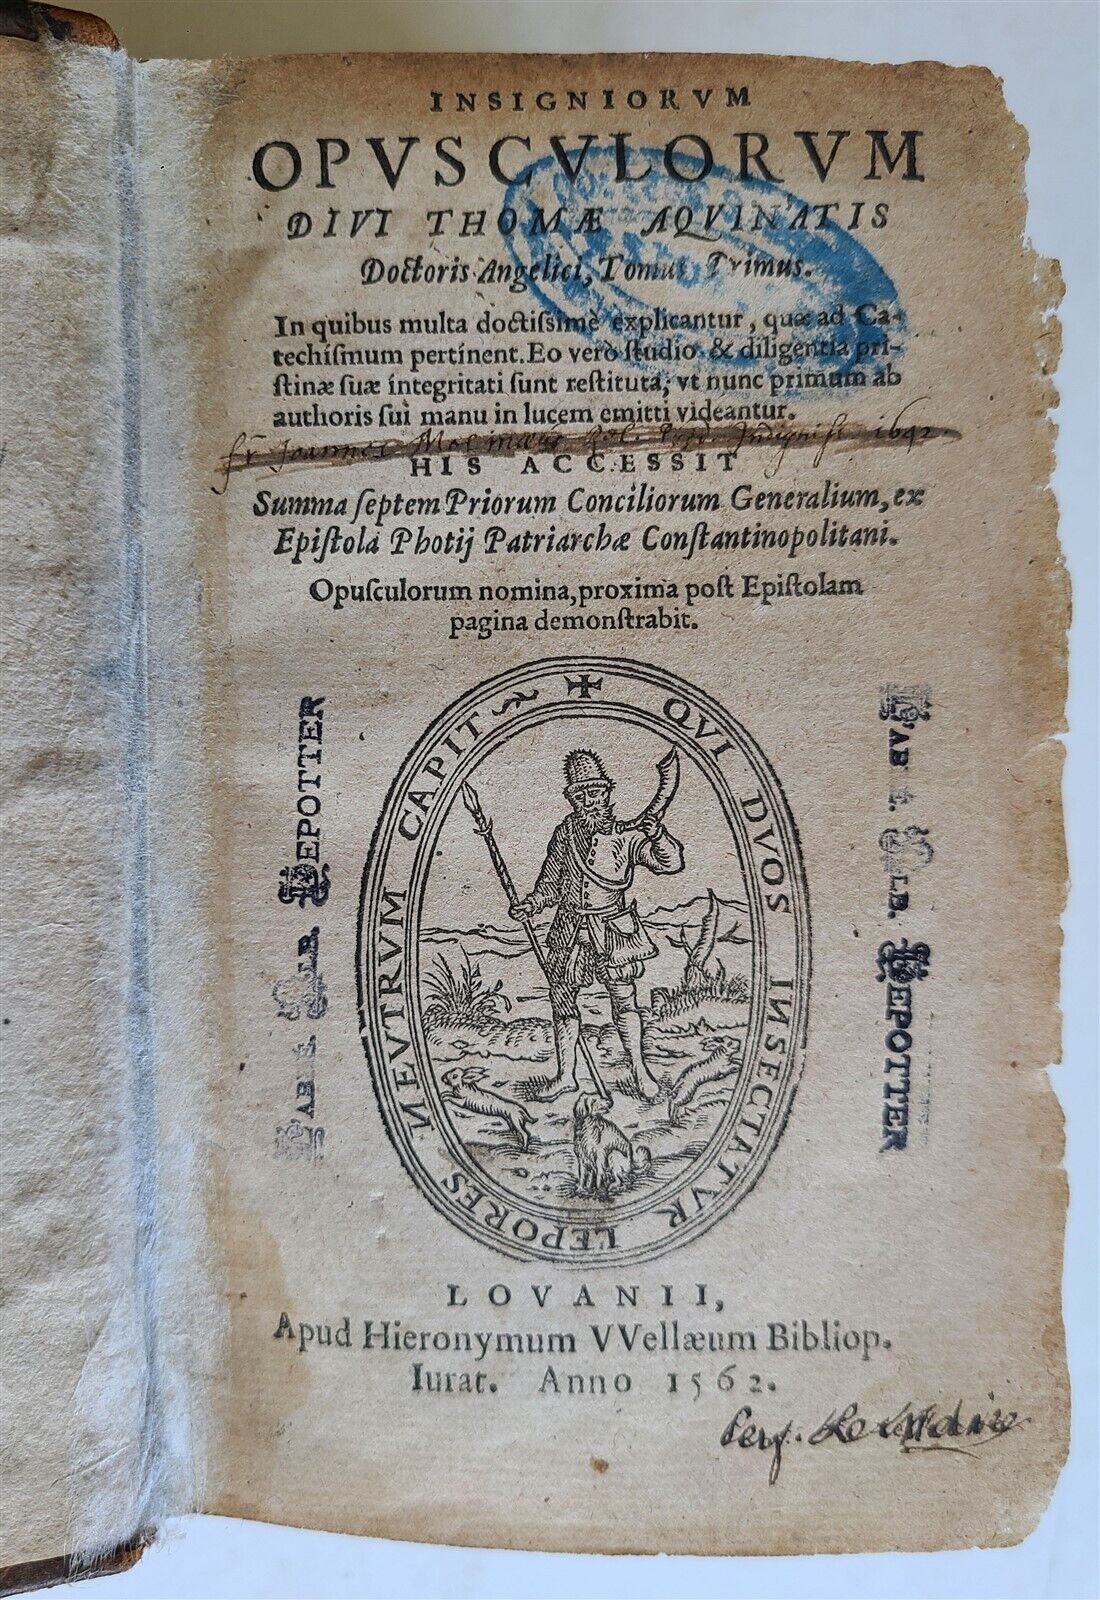 INSIGNIORVM
OPVSCVLORVM
DIVI THOMÆ AQVINATIS
Doctoris Angelici, Tomus Primus.
In quibus multa doctiſsimè explicantur, quæ ad Ca-
techiſmum pertinent. Eo verò ſtudio & diligentia pri-
ſtinæ ſuæ integritati ſunt reſtituta, vt nunc primum ab
authoris ſui manu in lucem emitti videantur.
fr Joannes 1692
HIS ACCESSIT
Summa ſeptem Priorum Conciliorum Generalium, ex
Epiſtola Photij Patriarchæ Conſtantinopolitani.
Opuſculorum nomina, proxima poſt Epiſtolam
pagina demonſtrabit.
QVI DVOS INSECTATVR LEPORES NEVTRVM CAPIT
DEPOTTER
DEPOTTER
LOVANII,
Apud Hieronymum VVellæum Bibliop.
Iurat. Anno 1562.